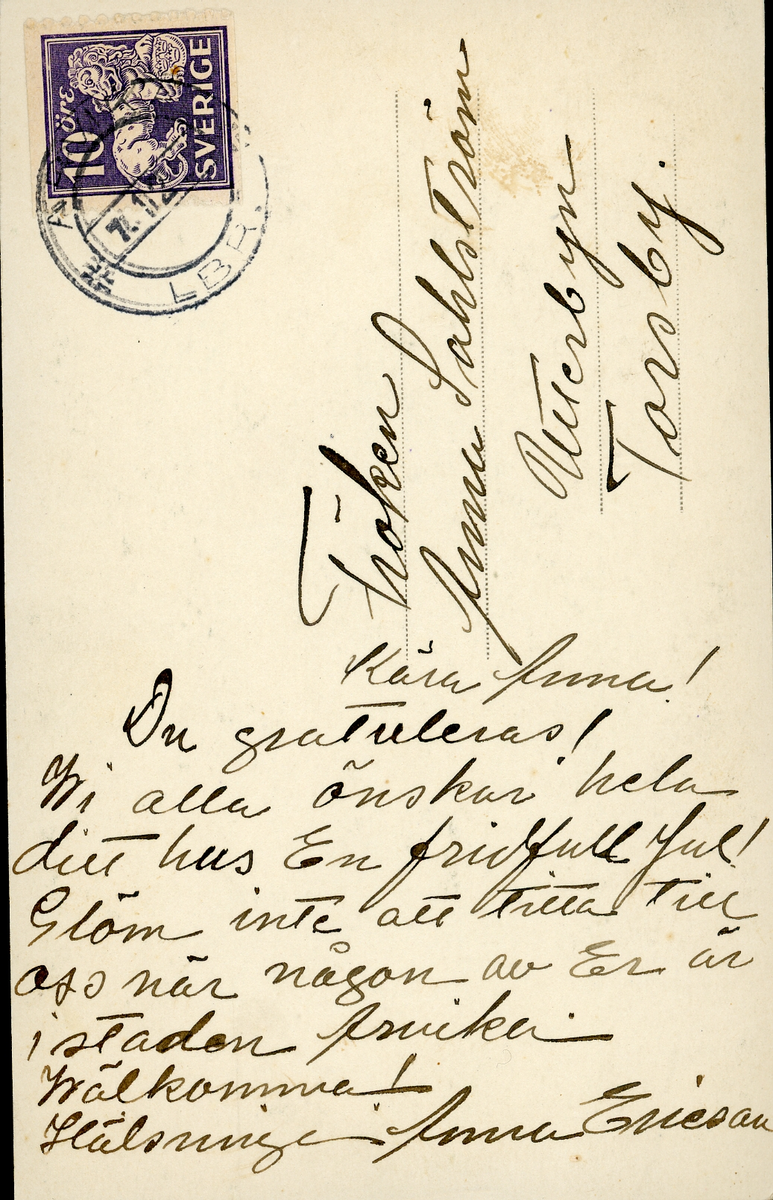 10 ÖRE
SVERIGE
LBR.
Fröken
Anna Sahlström
Utterbyn
Torsby.
Kära Anna!
Du gratuleras!
Wi alla önskar hela
ditt hus En fridfull Jul!
Glöm inte att titta till
oss när någon av Er är
i staden Arvika.
Wälkomma!
Hälsninge Anna Ericson